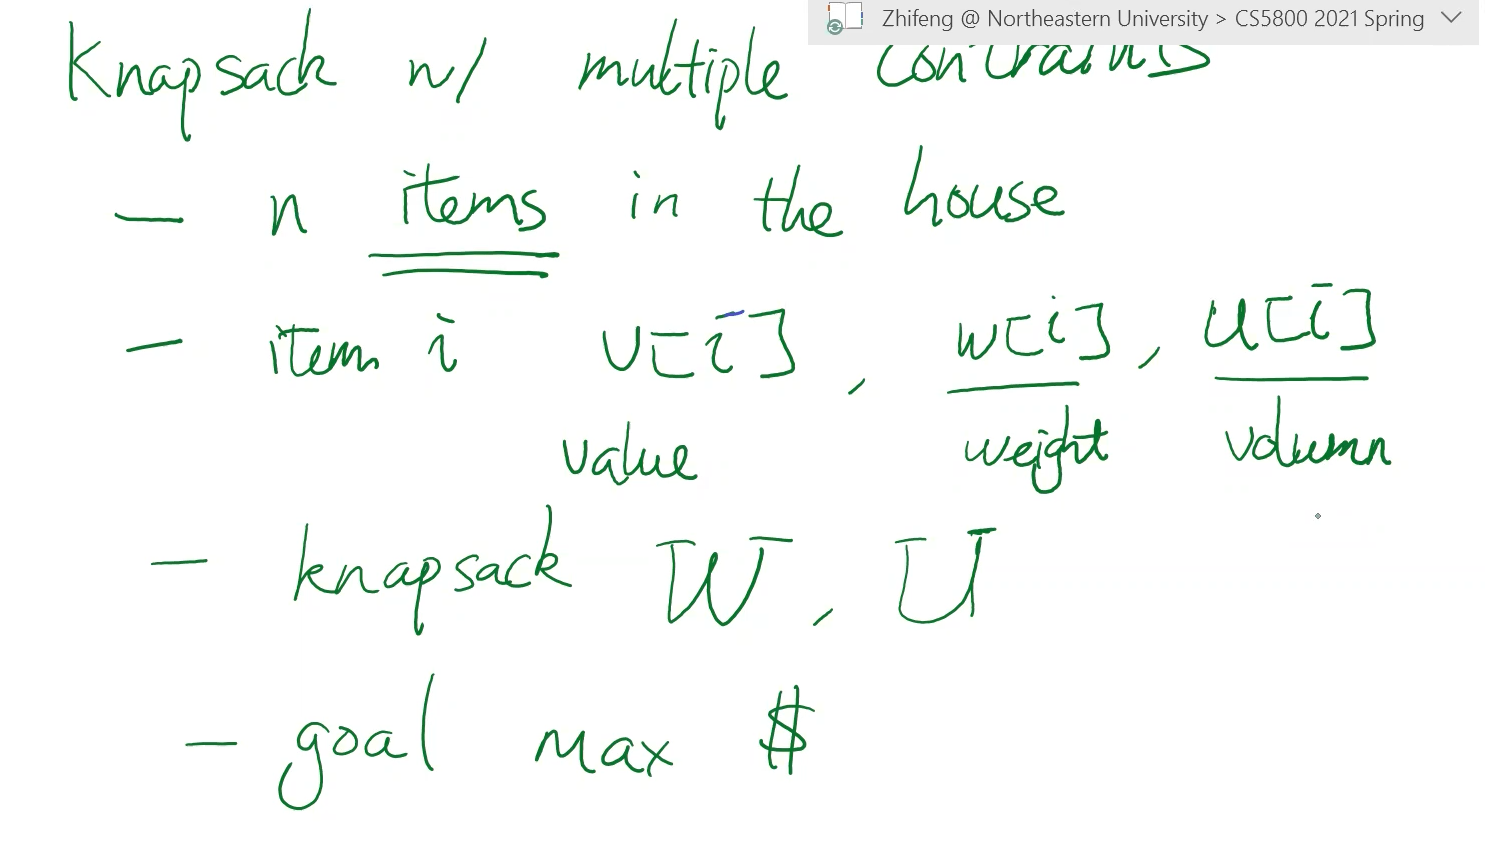 Zhifeng @ Northeastern University > CS5800 2021 Spring
Knapsack w/ multiple contraints
— n items in the house
— item i v[i], w[i], u[i]
value weight volumn
— knapsack W, U
— goal max $